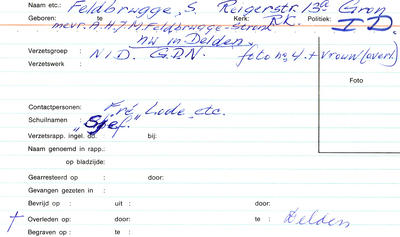 Naam etc.: Feldbrugge, S. Reigerstr. 13a Gron
Geboren: te Kerk: R.K. Politiek: ID
mevr. A.H.J.M. Feldbrugge-
nu in Delden.
Verzetsgroep : N.I.D. G.D.N. foto no 4. + vrouw (overl.)
Verzetswerk :
Foto
Contactpersonen: Fré, Lode, etc.
Schuilnamen : "Stef."
Verzetsrapp. ingel. do. bij:
Naam genoemd in rapp.:
op bladzijde:
Gearresteerd op : door:
Gevangen gezeten in :
Bevrijd op : uit : door:
† Overleden op : door: te : Delden
Begraven op : te :